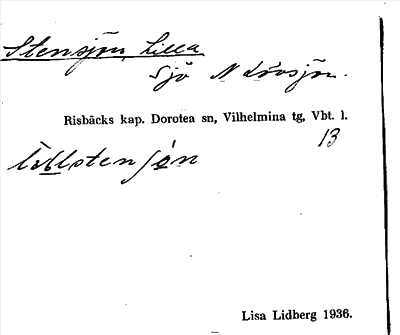 Stensjön, Lilla
Sjö N Lövsjön.
Risbäcks kap. Dorotea sn, Vilhelmina tg, Vbt. l.
13
Lisa Lidberg 1936.